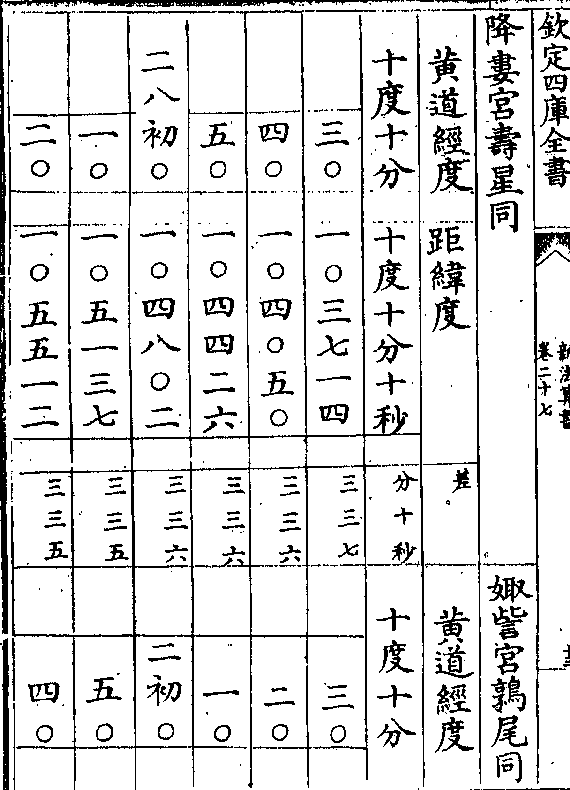 欽定四庫全書
新法算書
卷二十七
降婁宮壽星同 娵訾宮鶉尾同
黃道經度 距緯度 差 黃道經度
十度十分 十度十分十秒 分十秒 十度十分
三〇 一〇三七一四 三三七 三〇
四〇 一〇四〇五〇 三三六 二〇
五〇 一〇四四二六 三三六 一〇
二八初〇 一〇四八〇二 三三六 二初〇
一〇 一〇五一三七 三三五 五〇
二〇 一〇五五一二 三三五 四〇